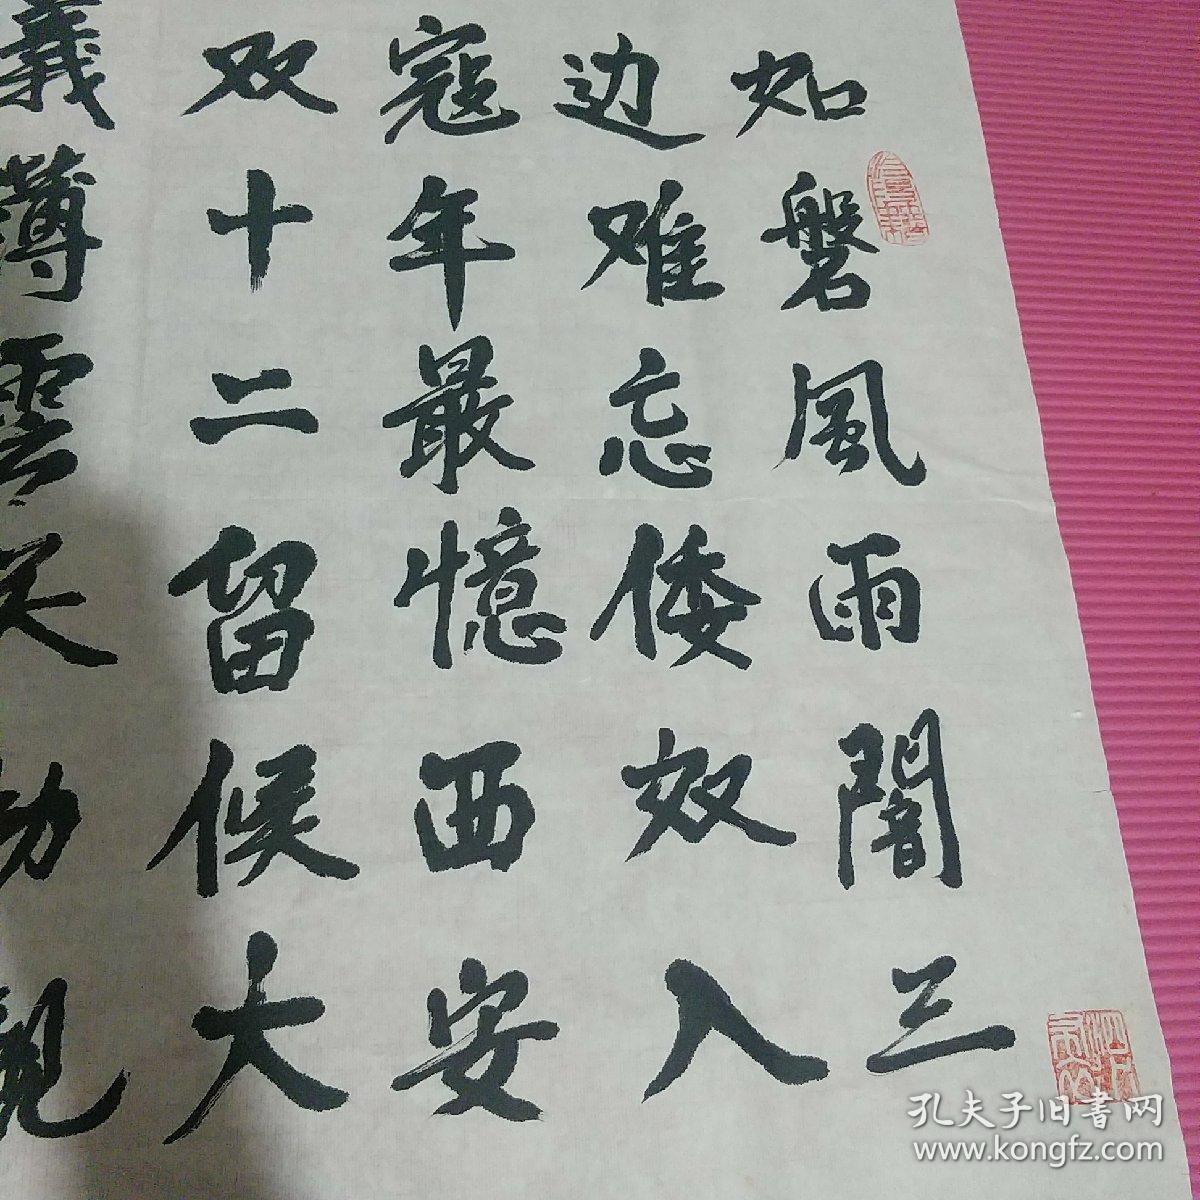 如磐風雨闇三
边难忘倭奴入
寇年最憶西安
双十二留候大
義薄雲天
孔夫子旧書网
www.kongfz.com